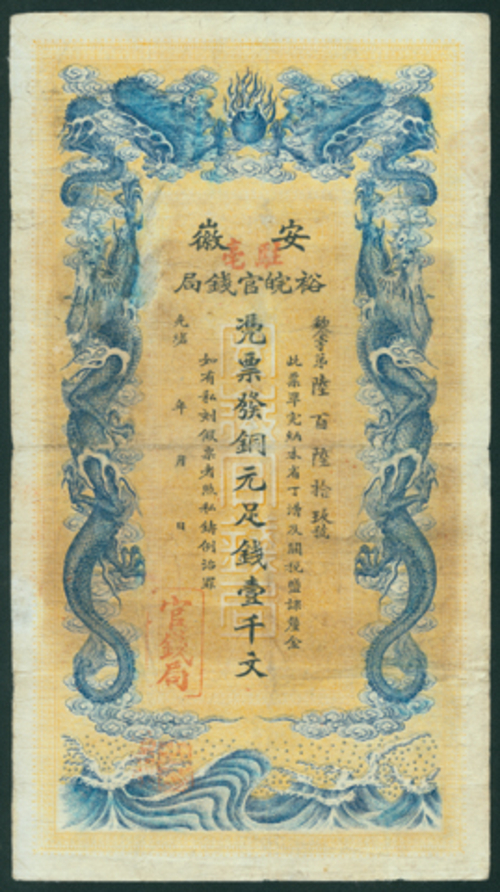 安徽
駐亳
裕皖官錢局
字第陸百陸拾玖號
此票準完納本省丁漕及關稅鹽課釐金
凴票發銅元足錢壹千文
如有私刻假票者照私鑄例治罪
光緒 年 月 日
官錢局